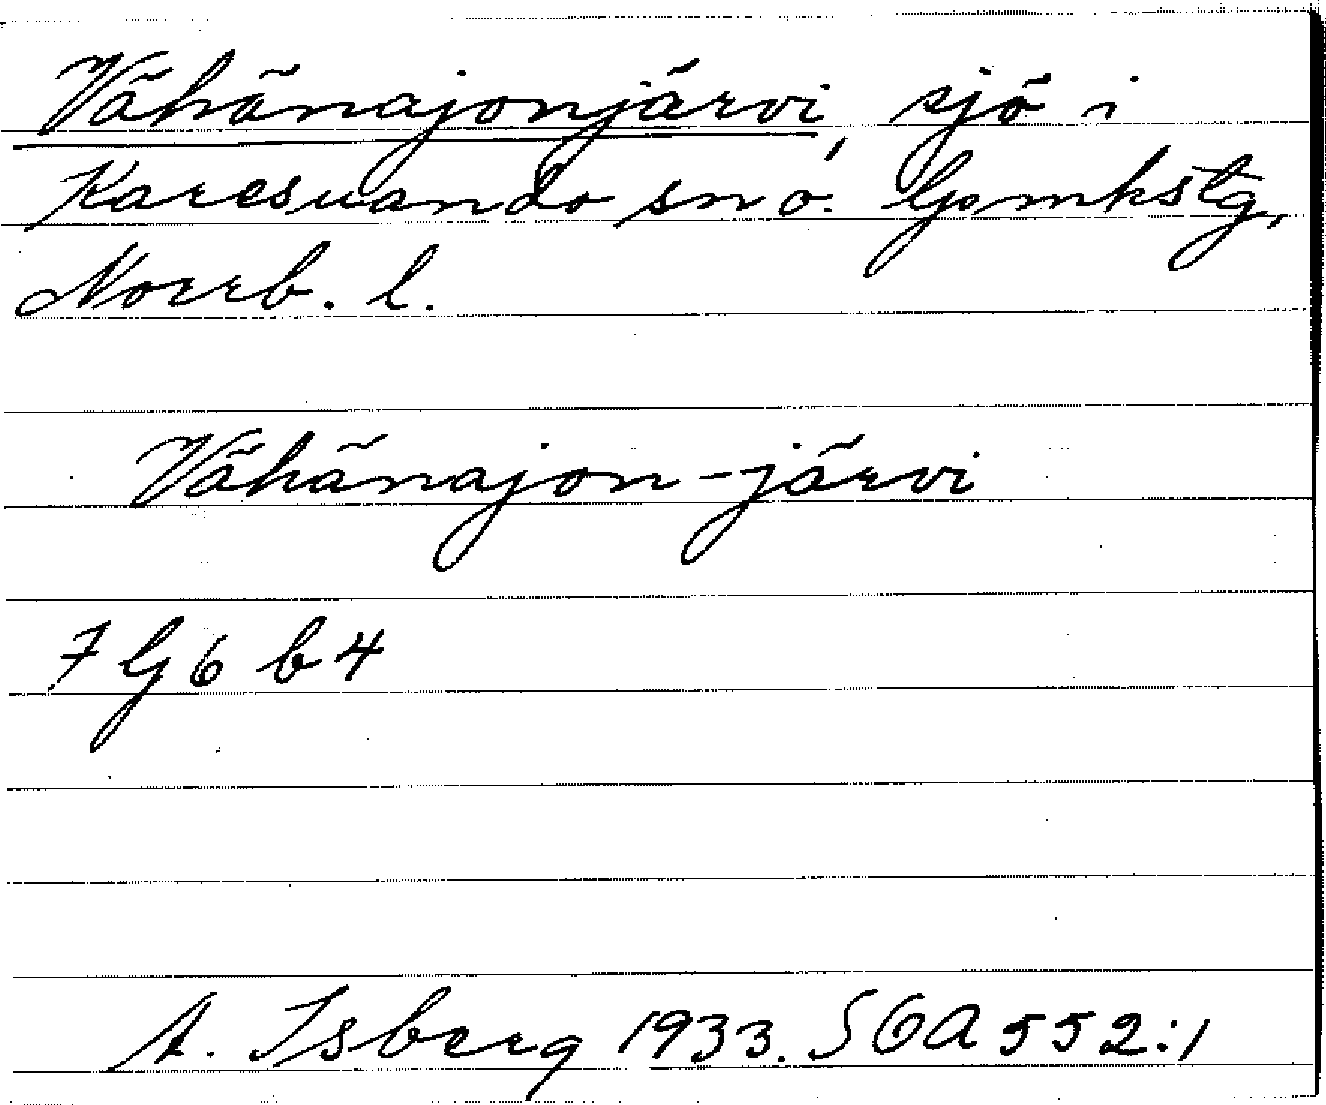 Vähänajonjärvi, sjö i
Karesuando sn o. lpmkstg,
Norrb. l.
Vähänajon-järvi
7 G 6 b 4
A. Isberg 1933. SOA 552:1